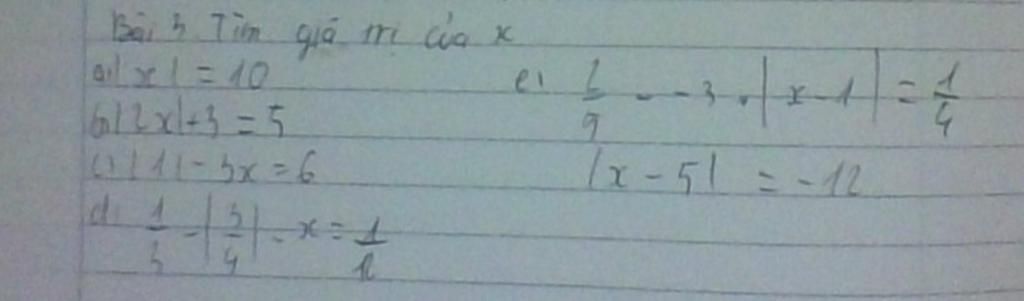 Bài 3. Tìm giá trị của x
a) |x| = 10
b) |2x| + 3 = 5
c) |1| - 3x = 6
d) 1/3 - |3/4| - x = 1/12
e) 2/9 - -3 . |x - 1| = 1/4
|x - 5| = -12